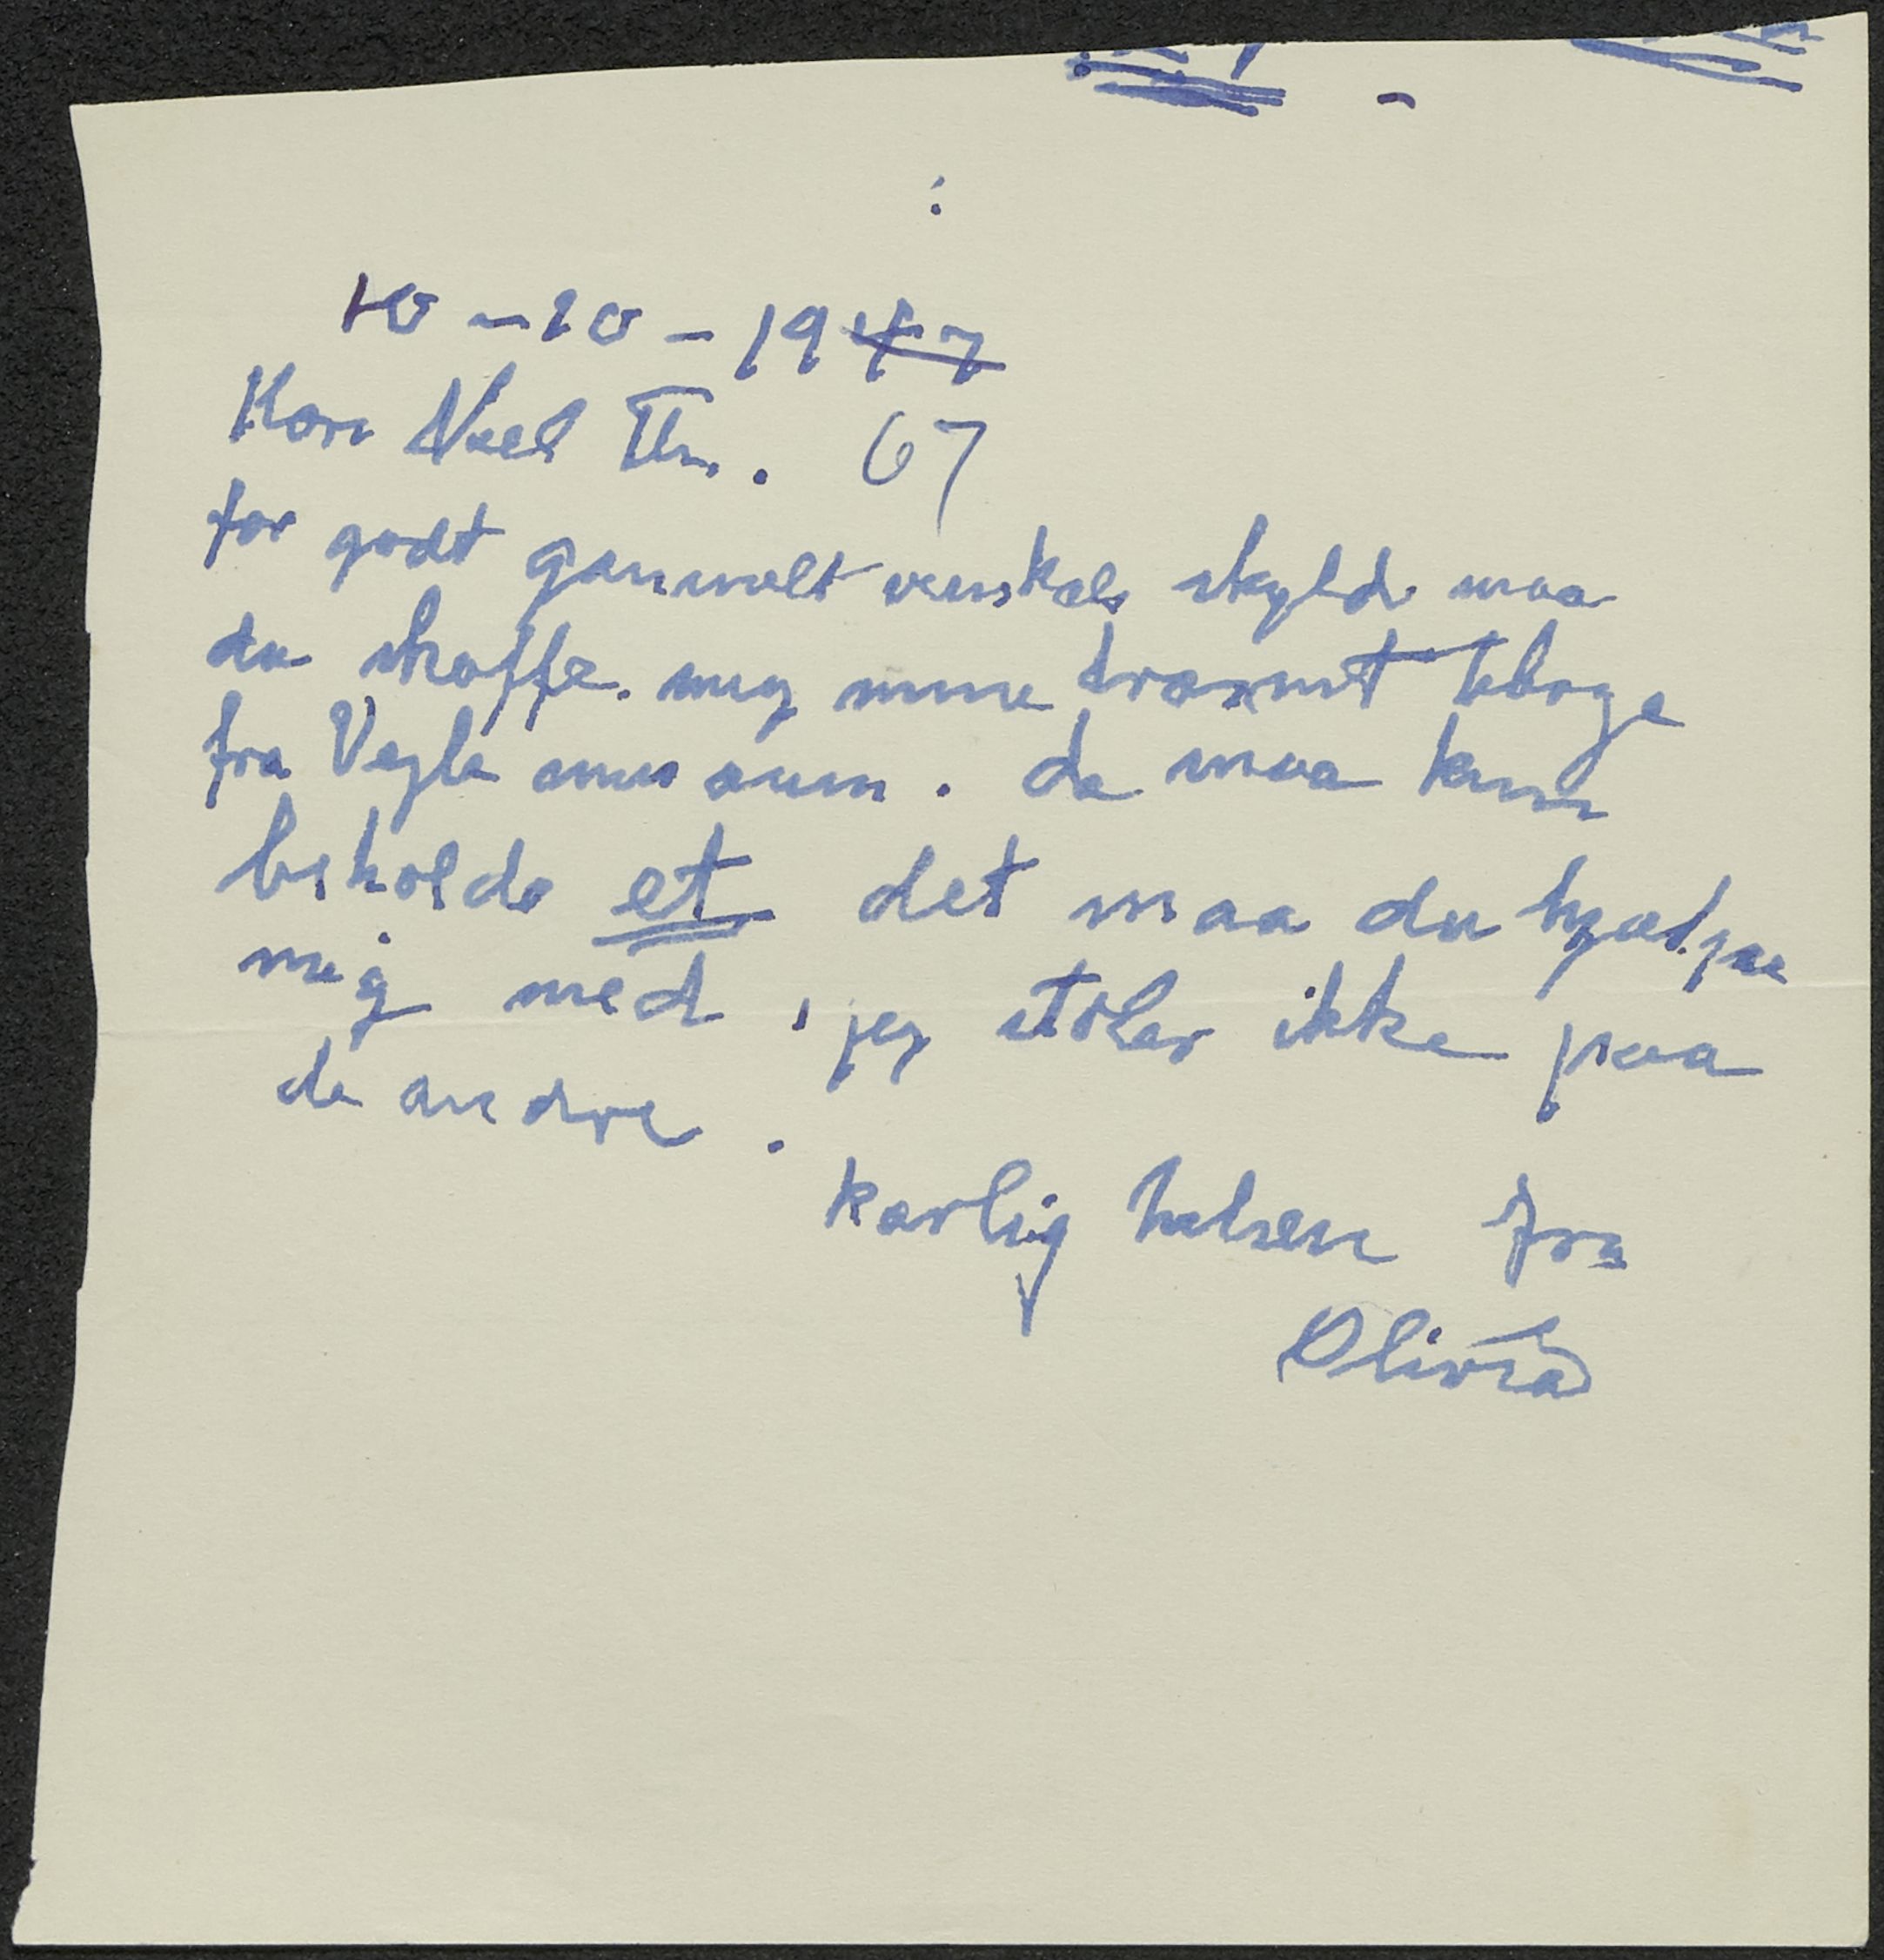 10-10-19 47
Kære Niels Th. 67
for godt gammelt venskabs skyld maa
du skaffe mig mine træsnit tilbage
fra Vejle museum. de maa kun
beholde et det maa du hjælpe
mig med, jeg stoler ikke paa
de andre.
kærlig hilsen fra
Olivia